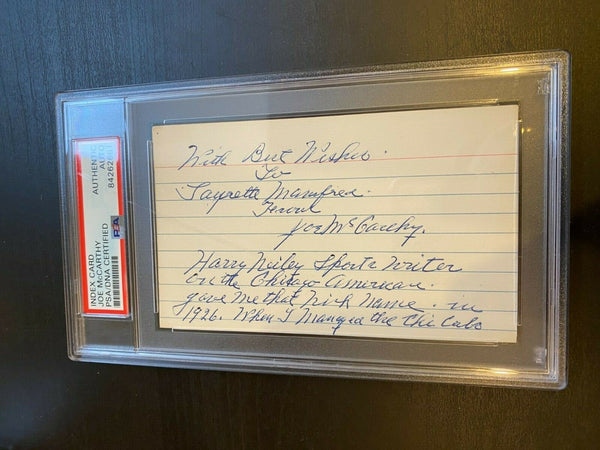 INDEX CARD
JOE McCARTHY
PSA/DNA CERTIFIED
AUTHENTIC
AUTO
PSA
With Best Wishes.
To
Manfred.
From
Joe McCarthy.
Harry Neiley Sports Writer
on the Chicago American.
gave me that Nick Name. in
1926. When I Managed the Chi Cubs